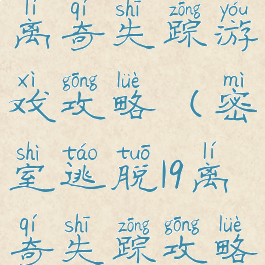 lí qí shī zōng yóu
离奇失踪游
xì gōng lüè mì
戏攻略(密
shì táo tuō lí
室逃脱19离
qí shī zōng gōng lüè
奇失踪攻略